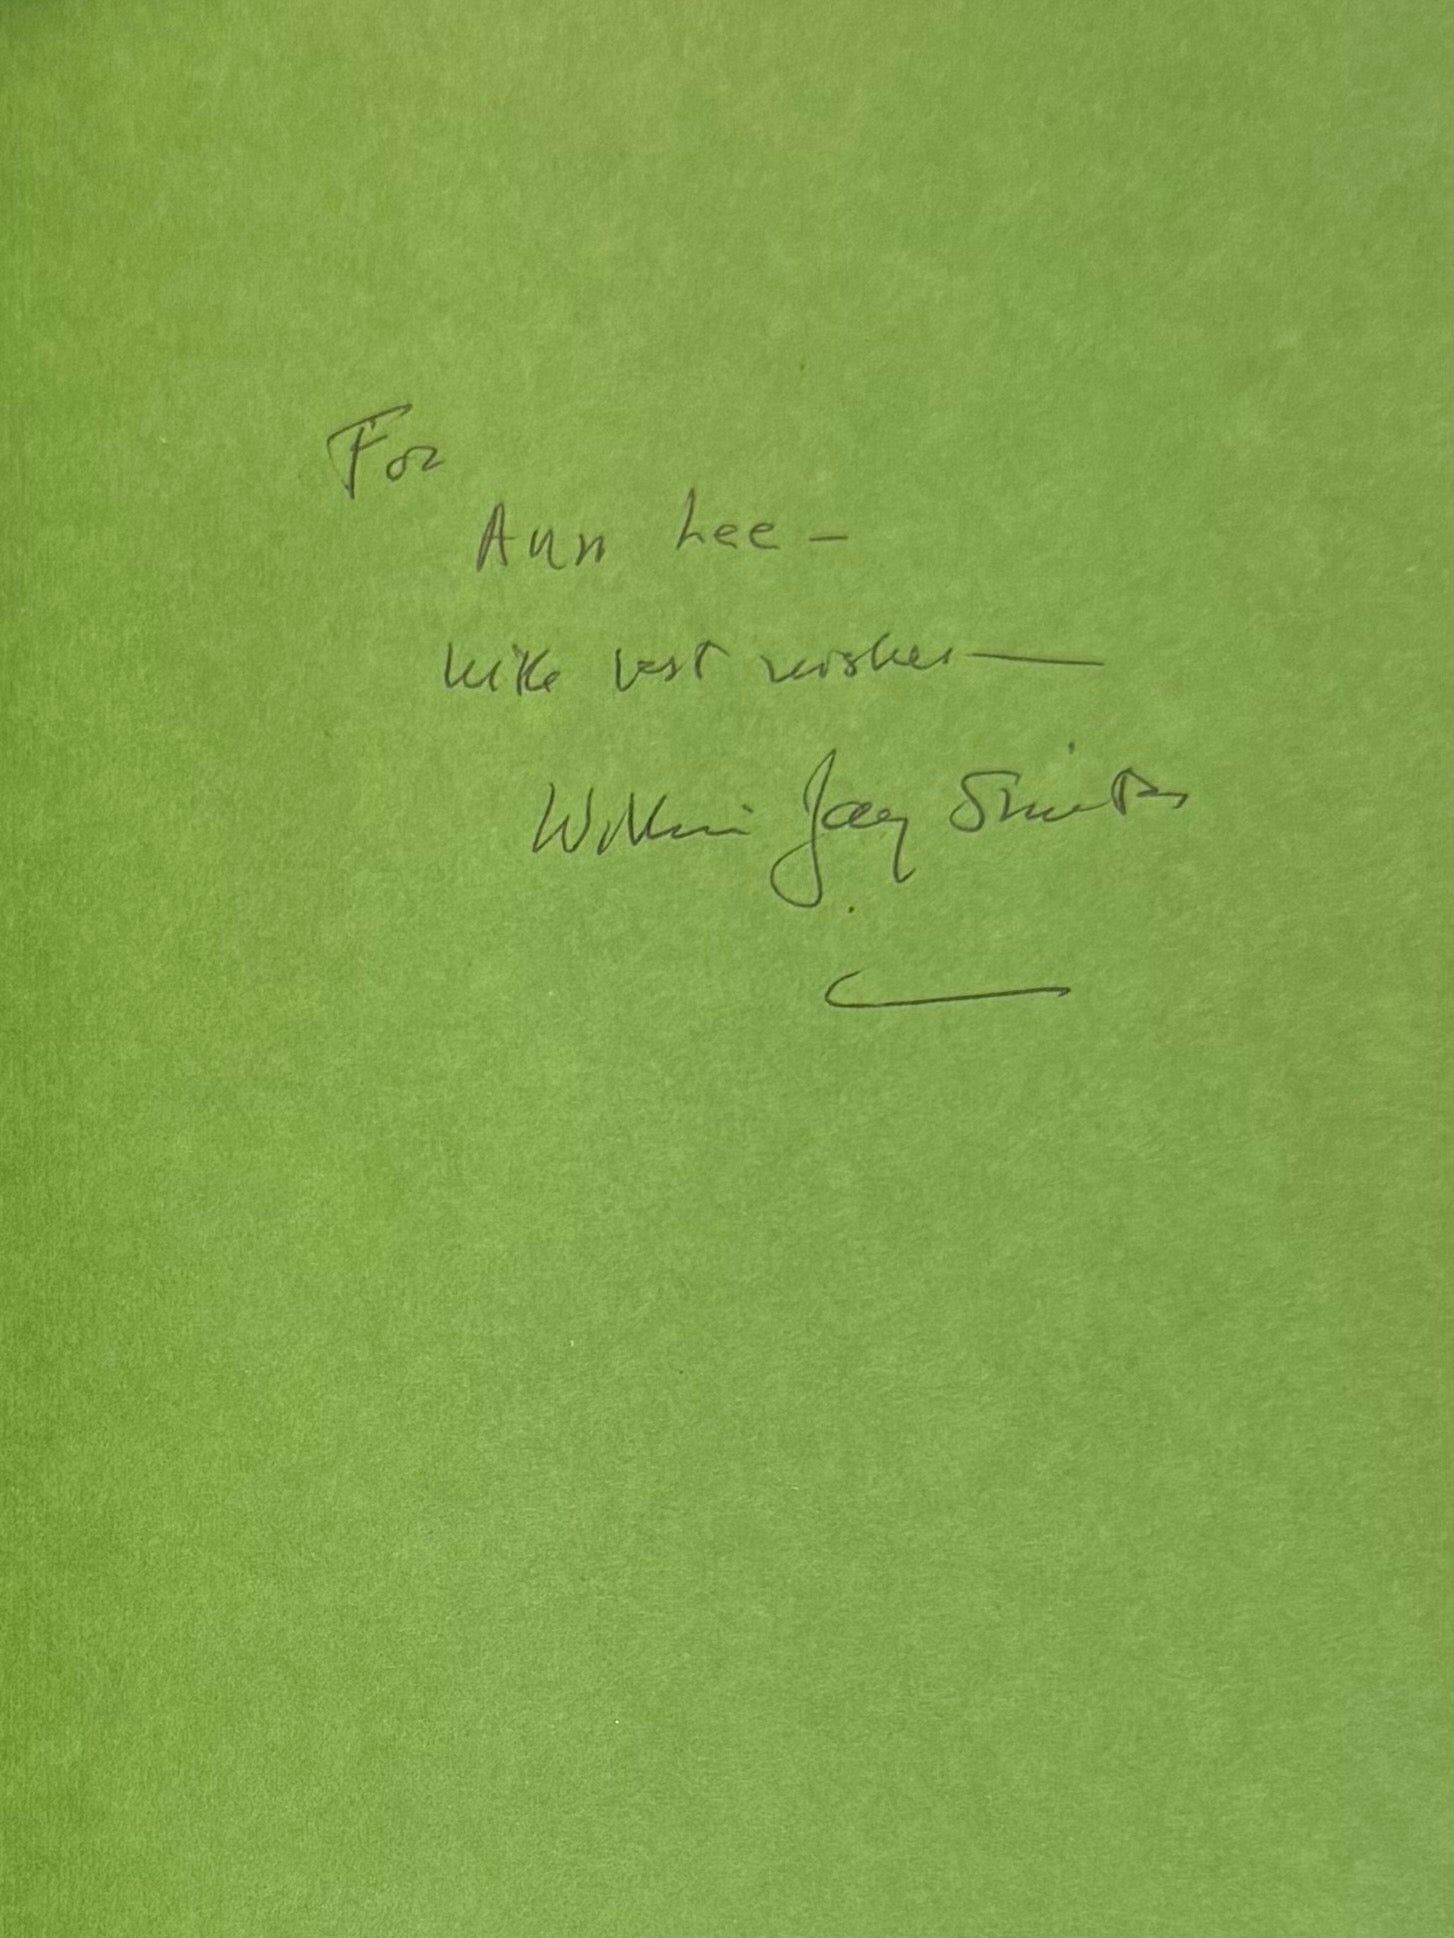 For
Ann Lee —
with best wishes —
William Jay Smith